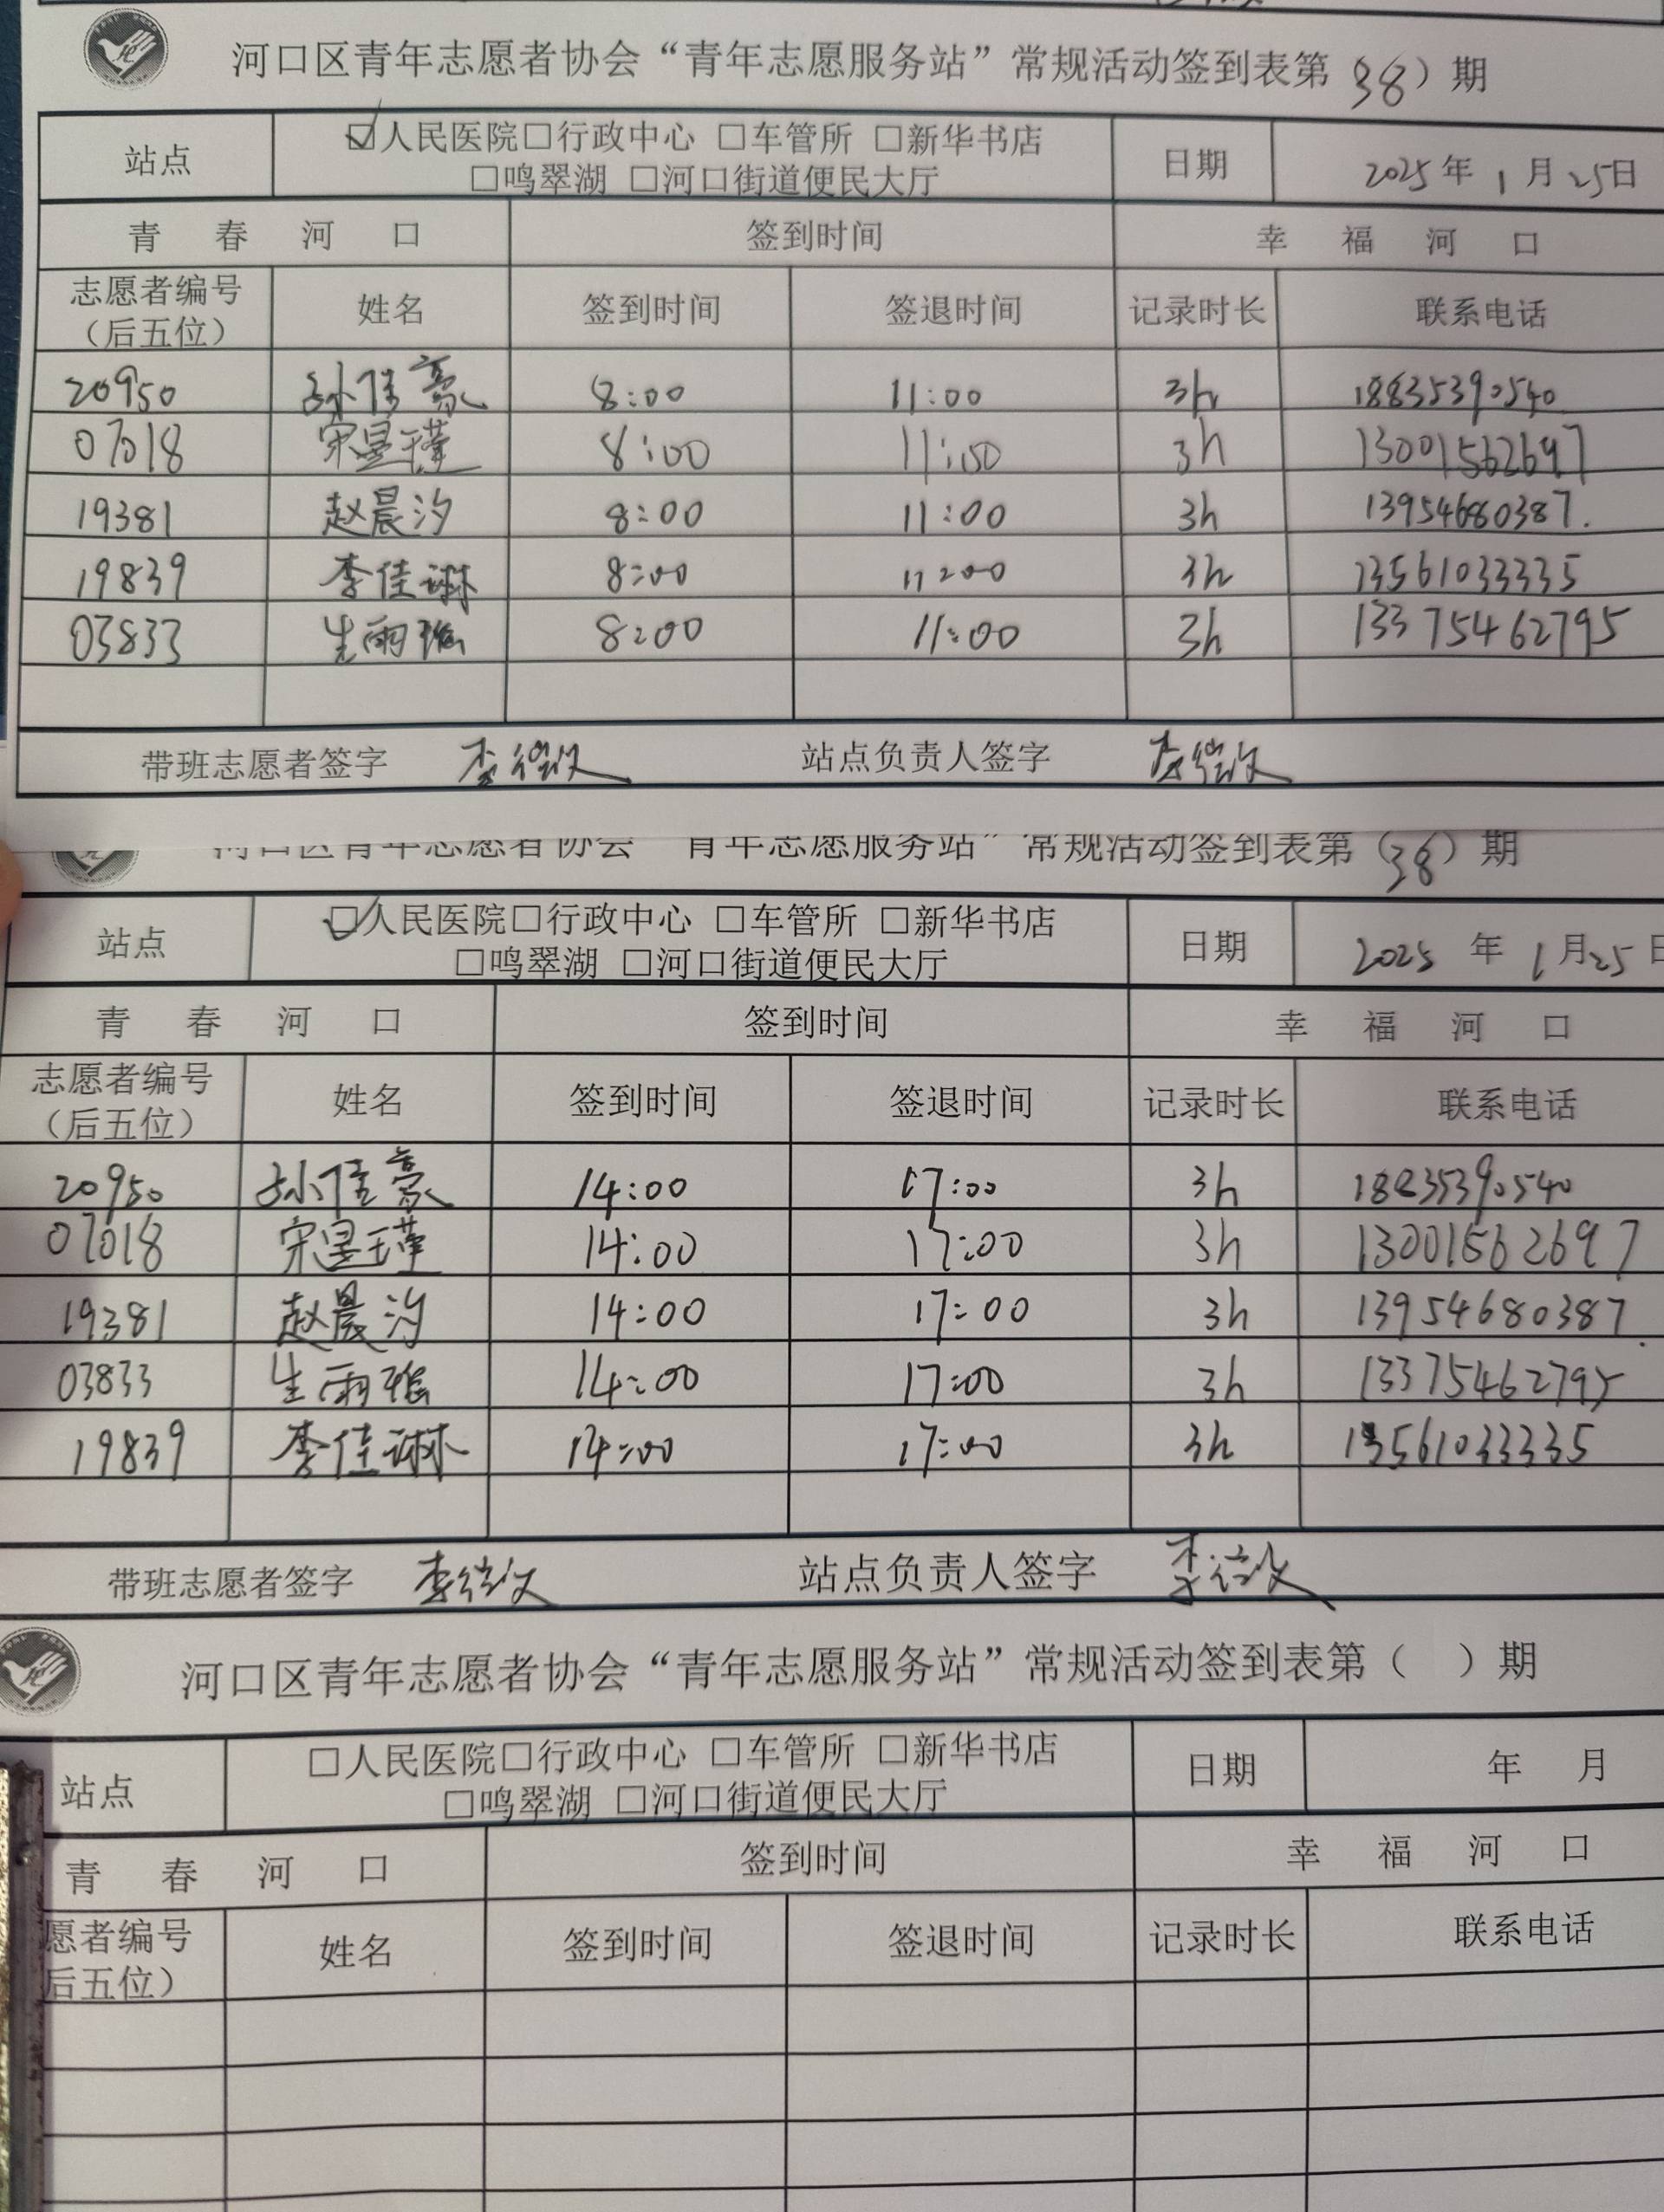 河口区青年志愿者协会“青年志愿服务站”常规活动签到表第 38）期
站点 ☑人民医院□行政中心 □车管所 □新华书店 日期 2025年 1 月 25日
□鸣翠湖 □河口街道便民大厅
青 春 河 口 签到时间 幸 福 河 口
志愿者编号（后五位） 姓名 签到时间 签退时间 记录时长 联系电话
20950 孙佳豪 8:00 11:00 3h 18835390540
07018 宋昱瑾 8:00 11:00 3h 13001562697
19381 赵晨汐 8:00 11:00 3h 13954680387.
19839 李佳琳 8:00 11:00 3h 13561033335
03833 生雨瑶 8:00 11:00 3h 13375462795
带班志愿者签字 站点负责人签字
河口区青年志愿者协会 青年志愿服务站” 常规活动签到表第（38）期
站点 ☑人民医院□行政中心 □车管所 □新华书店 日期 2025 年 1月25日
□鸣翠湖 □河口街道便民大厅
青 春 河 口 签到时间 幸 福 河 口
志愿者编号（后五位） 姓名 签到时间 签退时间 记录时长 联系电话
20950 孙佳豪 14:00 17:00 3h 18835390540
07018 宋昱瑾 14:00 17:00 3h 13001562697
19381 赵晨汐 14:00 17:00 3h 13954680387.
03833 生雨瑶 14:00 17:00 3h 13375462795
19839 李佳琳 14:00 17:00 3h 13561033335
带班志愿者签字 站点负责人签字
河口区青年志愿者协会“青年志愿服务站”常规活动签到表第（ ）期
站点 □人民医院□行政中心 □车管所 □新华书店 日期 年 月
□鸣翠湖 □河口街道便民大厅
青 春 河 口 签到时间 幸 福 河 口
愿者编号 后五位） 姓名 签到时间 签退时间 记录时长 联系电话